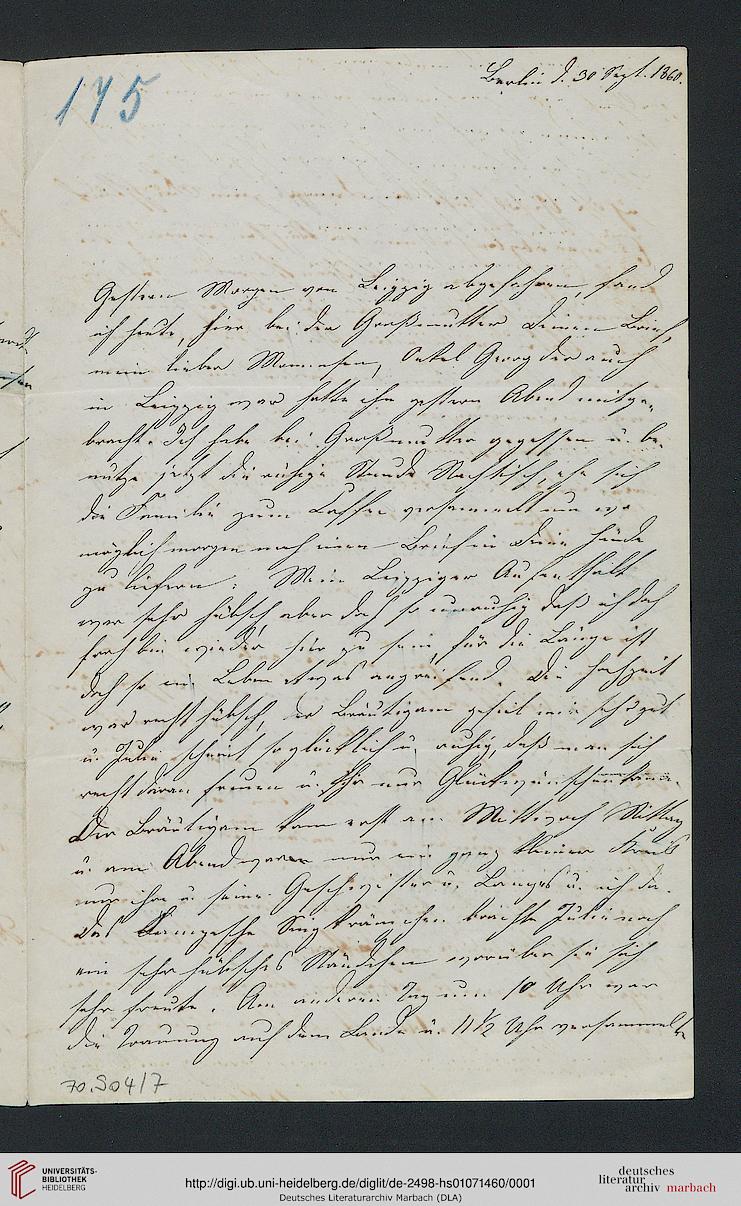 175
Berlin d. 30 Sept. 1860.
Gestern Morgen von Leipzig abgefahren, fand
ich heute, hier bei der Großmutter Deinen Brief,
mein lieber Mommsen, Onkel Georg der auch
in Leipzig war hatte ihn gestern Abend mitge-
bracht. Ich habe bei Großmutter gegessen u. be-
nutze jetzt die ruhige Stunde Nachtisch, ehe sich
die Familie zum Caffee versammelt um wo
möglich morgen noch einen Brief in Deine Hände
zu liefern. Mein Leipziger Aufenthalt
war sehr hübsch aber doch so unruhig daß ich doch
froh bin wieder hier zu sein, für die Länge ist
doch so ein Leben etwas angreifend. Die Hochzeit
war recht hübsch, der Bräutigam gefiel mir sehr gut
u. Julie scheint so glücklich u. ruhig, daß man sich
recht daran freuen u. Ihr nur Glückwünschen kann.
Der Bräutigam kam erst am Mittwoch Mittag
u. am Abend waren nur ein ganz kleiner Kreis
nur ihre u. seine Geschwister u. Langes u. ich da.
Das Kränzchen brachte Julie noch
ein sehr hübsches Ständchen worüber sie sich
sehr freute. Am anderen Tag um 10 Uhr war
die Trauung auf dem Lande u. 11½ Uhr versammelte
70.504/7
UNIVERSITÄTS-
BIBLIOTHEK
HEIDELBERG
http://digi.ub.uni-heidelberg.de/diglit/de-2498-hs01071460/0001
Deutsches Literaturarchiv Marbach (DLA)
deutsches
literatur
archiv marbach